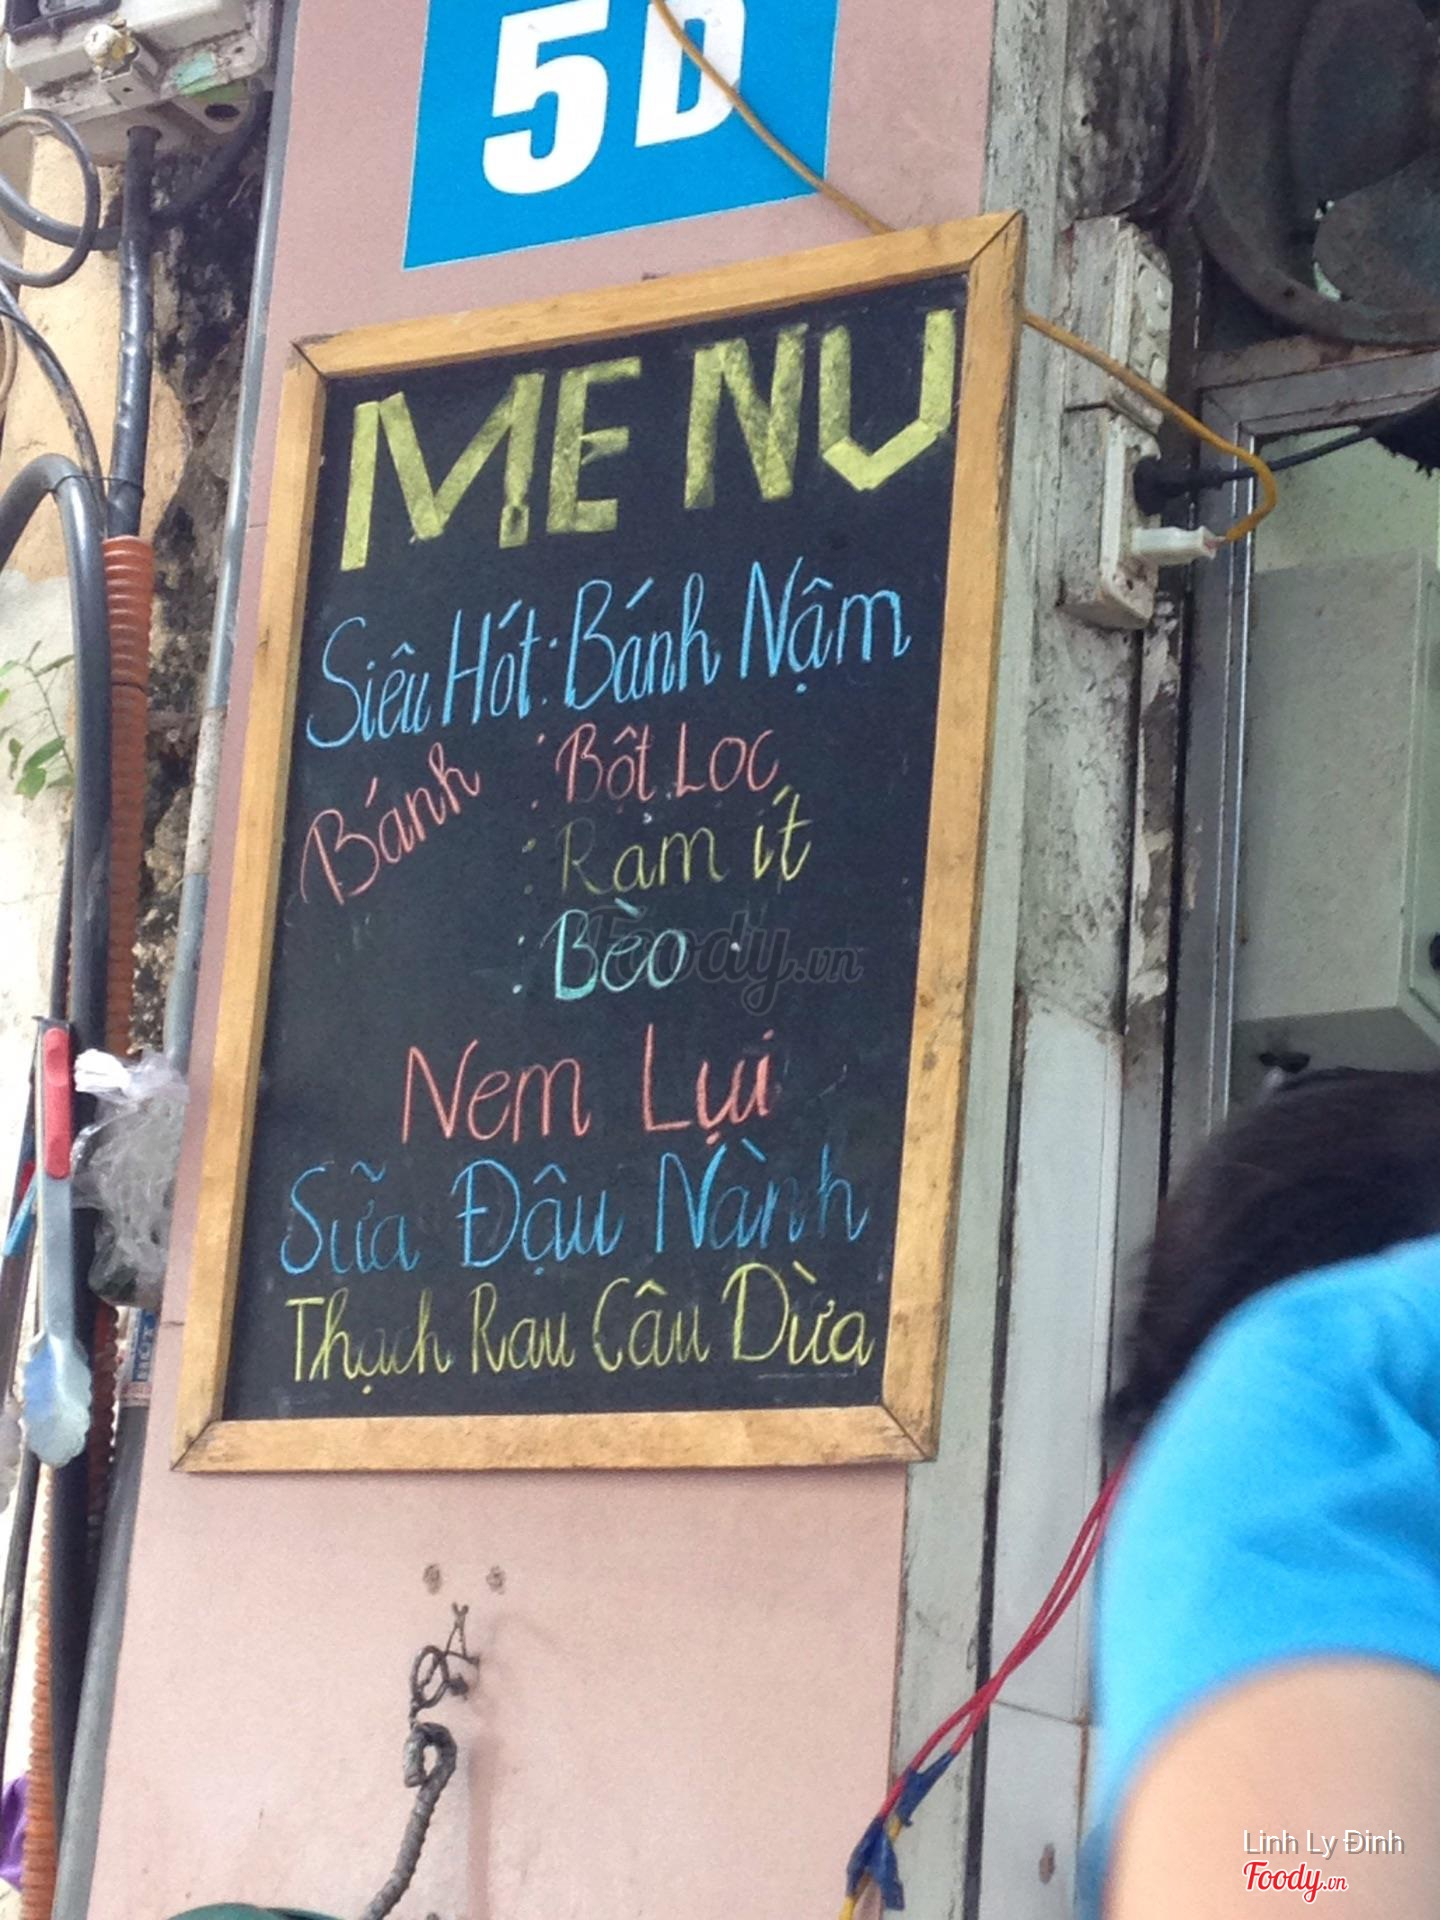 5D
MENU
Siêu Hót: Bánh Nậm
Bánh : Bột Lọc
: Ram ít
: Bèo
Foody.vn
Nem Lụi
Sữa Đậu Nành
Thạch Rau Câu Dừa
Linh Ly Đinh
Foody.vn